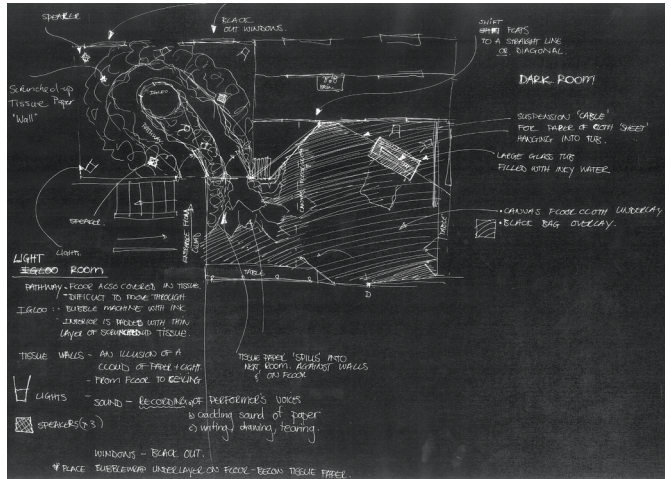 SPEAKER
BLACK
OUT WINDOWS.
SHIFT
FLATS
TO A STRAIGHT LINE
OR DIAGONAL
DARK ROOM
Scrunched-up
Tissue Paper
"Wall"
IGLOO
PATHWAY
SUSPENSION 'CABLE'
FOR PAPER OR CLOTH 'SHEET'
HANGING INTO TUB.
LARGE GLASS TUB
FILLED WITH INKY WATER
• CANVAS FLOOR CLOTH UNDERLAY
• BLACK BAG OVERLAY.
CANVAS FLOOR CLOTH
TABLE
SPEAKER.
ENTRANCE FROM
QUAD
TABLE
D
LIGHTS.
LIGHT
IGLOO ROOM
PATHWAY - FLOOR ALSO COVERED IN TISSUE.
- DIFFICULT TO MOVE THROUGH
IGLOO :- BUBBLE MACHINE WITH INK
- INTERIOR IS PADDED WITH THIN
LAYER OF SCRUNCHED UP TISSUE.
TISSUE WALLS - AN ILLUSION OF A
CLOUD OF PAPER + LIGHT.
- FROM FLOOR TO CEILING
TISSUE PAPER 'SPILLS' INTO
NEXT ROOM. AGAINST WALLS
& ON FLOOR
LIGHTS
SOUND - RECORDING OF PERFORMER'S VOICES
b) crackling sound of paper
c) writing, drawing, tearing.
SPEAKERS (x3)
WINDOWS - BLACK OUT.
* PLACE BUBBLEWRAP UNDERLAYER ON FLOOR - BELOW TISSUE PAPER.